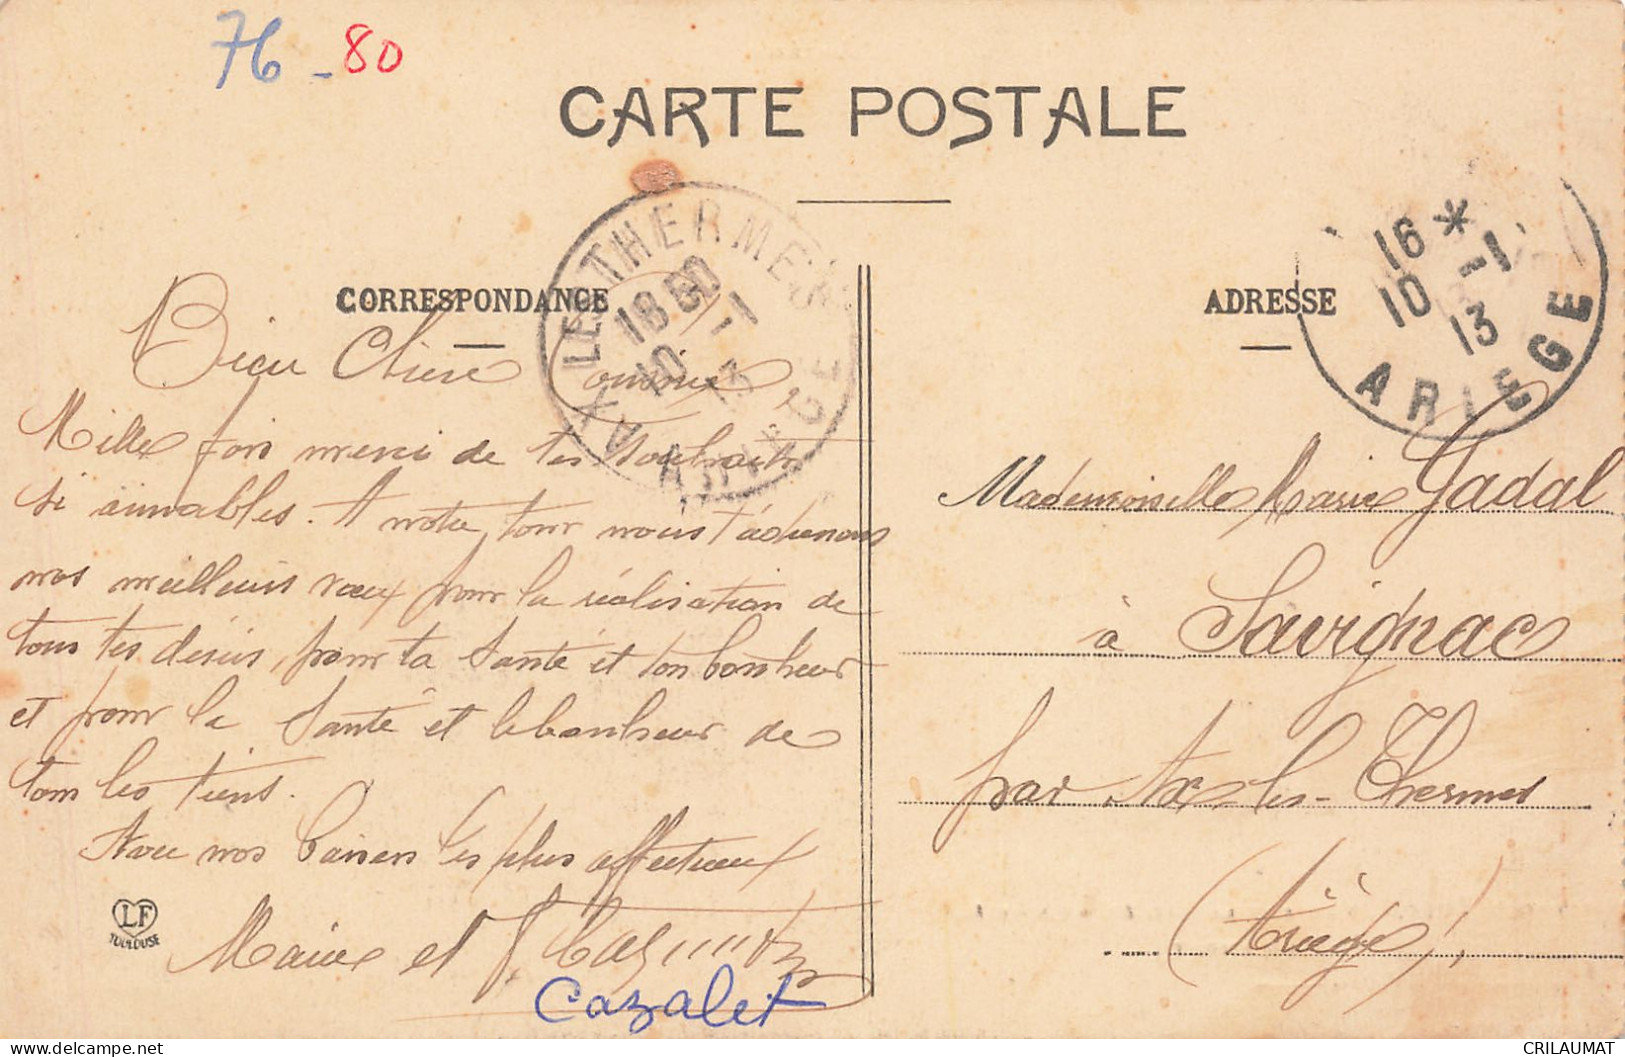 76 - 80
CARTE POSTALE
CORRESPONDANCE
ADRESSE
AX LES THERMES
18
10 -1
13
ARIEGE
16 *
10 -1
13
ARIEGE
Bien Chère Cousine,
Mille fois merci de tes souhaits
si aimables. A notre tour nous t'adressons
nos meilleurs vœux pour la réalisation de
tous tes désirs, pour ta Santé et ton bonheur
et pour la Santé et le bonheur de
tous les tiens.
Avec nos baisers les plus affectueux
Marie et
Cazalet
LF
TOULOUSE
Mademoiselle Marie Gadal
à Savignac
par Ax-les-Thermes
(Ariège),
CRILAUMAT